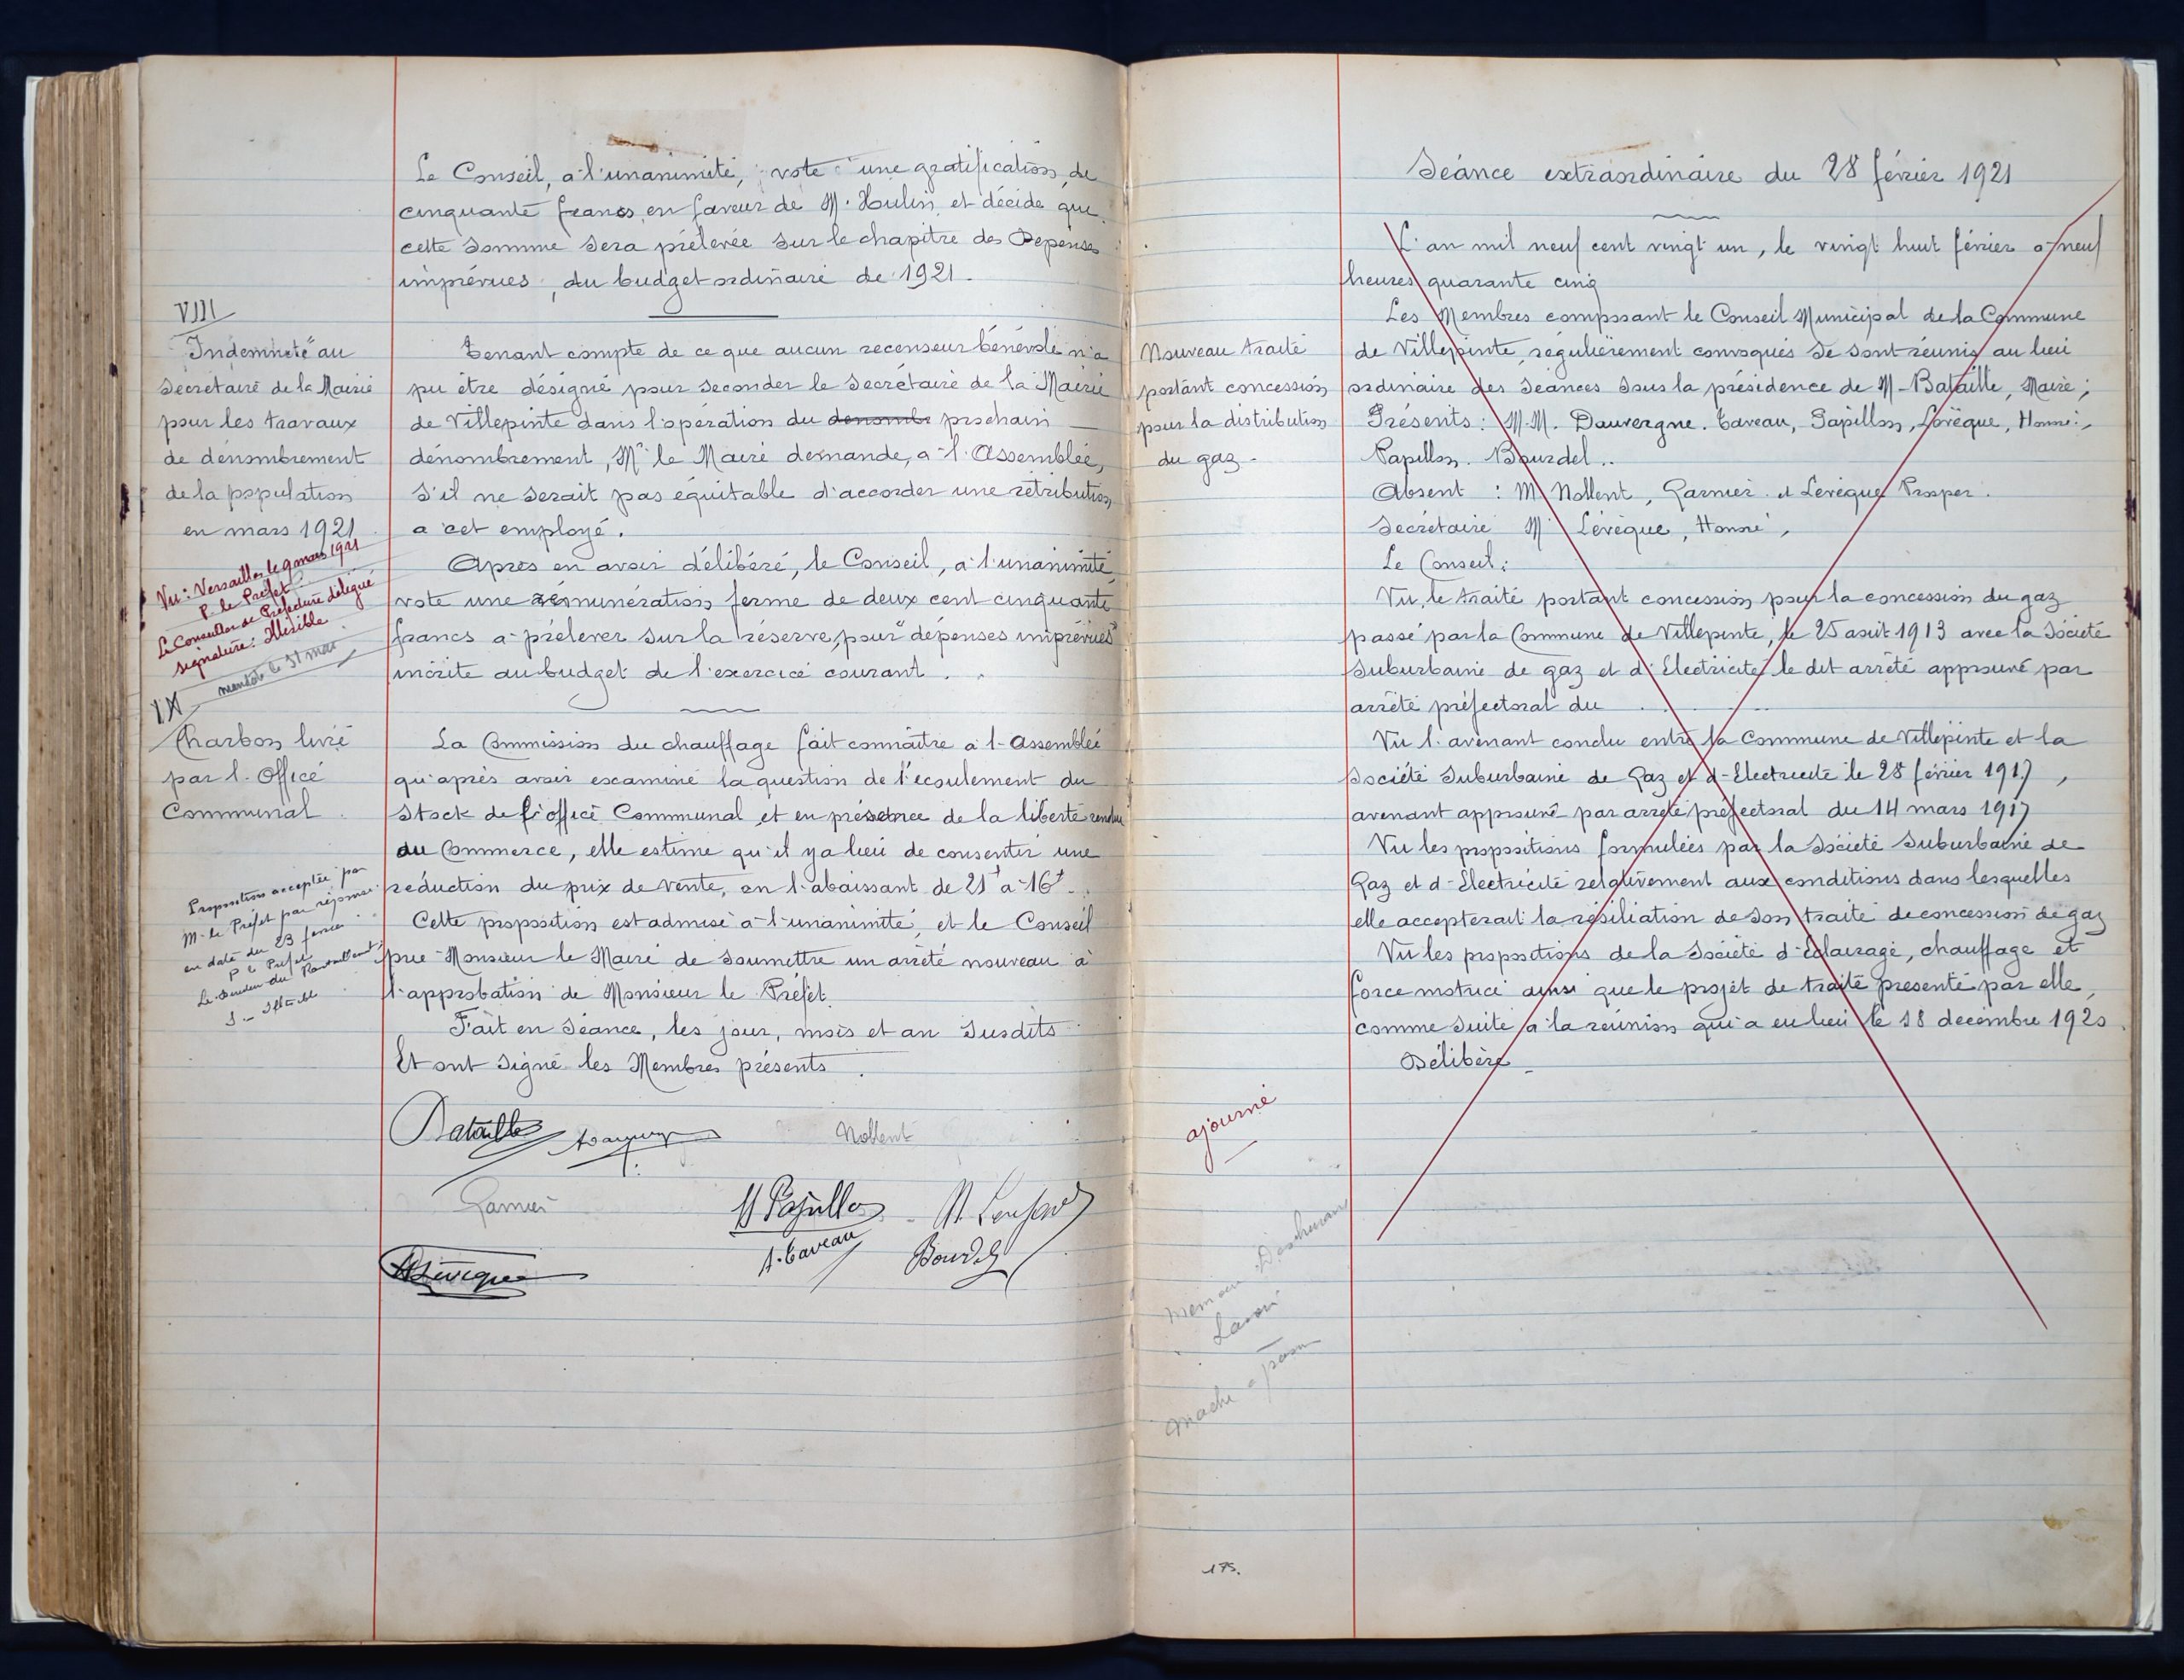 Le Conseil, à l'unanimité, vote une gratification de
cinquante francs en faveur de M. Houlin et décide que
cette somme sera prélevée sur le chapitre des Dépenses
imprévues, du budget ordinaire de 1921.
VIII
Indemnité au
Secrétaire de la Mairie
pour les travaux
de dénombrement
de la population
en mars 1921
Vu: Versailles le 9 mars 1921
P. le Préfet
Le Conseiller de Préfecture délégué
signature: Illisible
mandaté le 31 mai
Tenant compte de ce que aucun recenseur bénévole n'a
pu être désigné pour seconder le Secrétaire de la Mairie
de Villepinte dans l'opération du denombr prochain
dénombrement, Mr le Maire demande, à l'Assemblée,
s'il ne serait pas équitable d'accorder une rétribution
à cet employé.
Après en avoir délibéré, le Conseil, à l'unanimité
vote une rémunération ferme de deux cent cinquante
francs à prélever sur la réserve, pour "dépenses imprévues"
inscrite au budget de l'exercice courant.
IX
Charbon livré
par l'Office
Communal
Proposition acceptée par
M. le Préfet par réponse
en date du 23 février
P. le Préfet
Le du Ravitaillement
La Commission du chauffage fait connaître à l'Assemblée
qu'après avoir examiné la question de l'écoulement du
stock de l'office Communal et en présence de la liberté rendue
au Commerce, elle estime qu'il y a lieu de consentir une
réduction du prix de vente, en l'abaissant de 21f à 16f.
Cette proposition est admise à l'unanimité, et le Conseil
prie Monsieur le Maire de soumettre un arrêté nouveau à
l'approbation de Monsieur le Préfet.
Fait en Séance, les jour, mois et an susdits
Et ont signé les Membres présents
Bataille
Nollent
Garnier
H Papillon
A. Taveau
Bourdel
H Lévêque
Séance extraordinaire du 28 février 1921
L'an mil neuf cent vingt un, le vingt huit février à neuf
heures quarante cinq
Les Membres composant le Conseil Municipal de la Commune
de Villepinte, régulièrement convoqués se sont réunis au lieu
ordinaire des séances sous la présidence de M. Bataille, Maire;
Présents: M.M. Dauvergne. Taveau, Papillon, Lévêque, Honoré,
Papillon. Bourdel..
Absent : M. Nollent, Garnier et Lévêque Prosper.
Secrétaire M. Lévêque, Honoré,
Nouveau traité
portant concession
pour la distribution
du gaz.
Le Conseil:
Vu, le traité portant concession pour la concession du gaz
passé par la Commune de Villepinte, le 25 août 1913 avec la Société
Suburbaine de gaz et d'Electricité le dit arrêté approuvé par
arrêté préfectoral du . . . . .
Vu l'avenant conclu entre la Commune de Villepinte et la
Société Suburbaine de Gaz et d'Electricité le 28 février 1917,
avenant approuvé par arrêté préfectoral du 14 mars 1917
Vu les propositions formulées par la Société Suburbaine de
Gaz et d'Electricité relativement aux conditions dans lesquelles
elle accepterait la résiliation de son traité de concession de gaz
Vu les propositions de la Société d'Eclairage, chauffage et
force motrice ainsi que le projet de traité présenté par elle,
comme suite à la réunion qui a eu lieu le 18 décembre 1920
Délibère
ajourné
175.